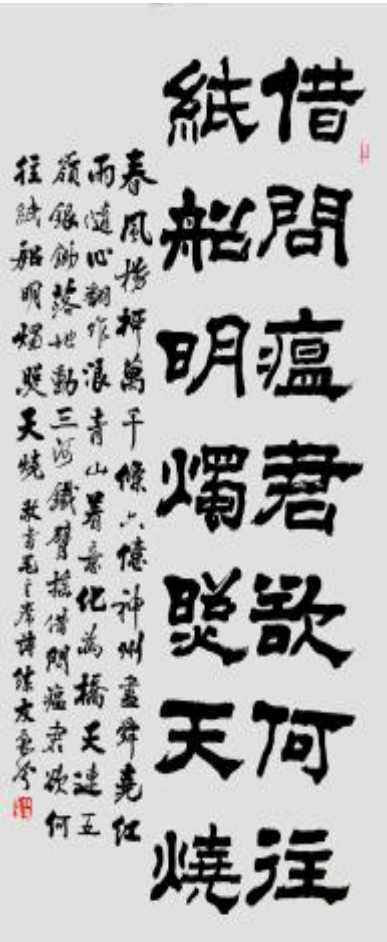 借問瘟君欲何往
紙船明燭照天燒
春風楊柳萬千條六億神州盡舜堯紅
雨隨心翻作浪青山着意化為橋天連五
嶺銀鋤落地動三河鐵臂搖借問瘟君欲何
往紙船明燭照天燒 敬書毛主席詩